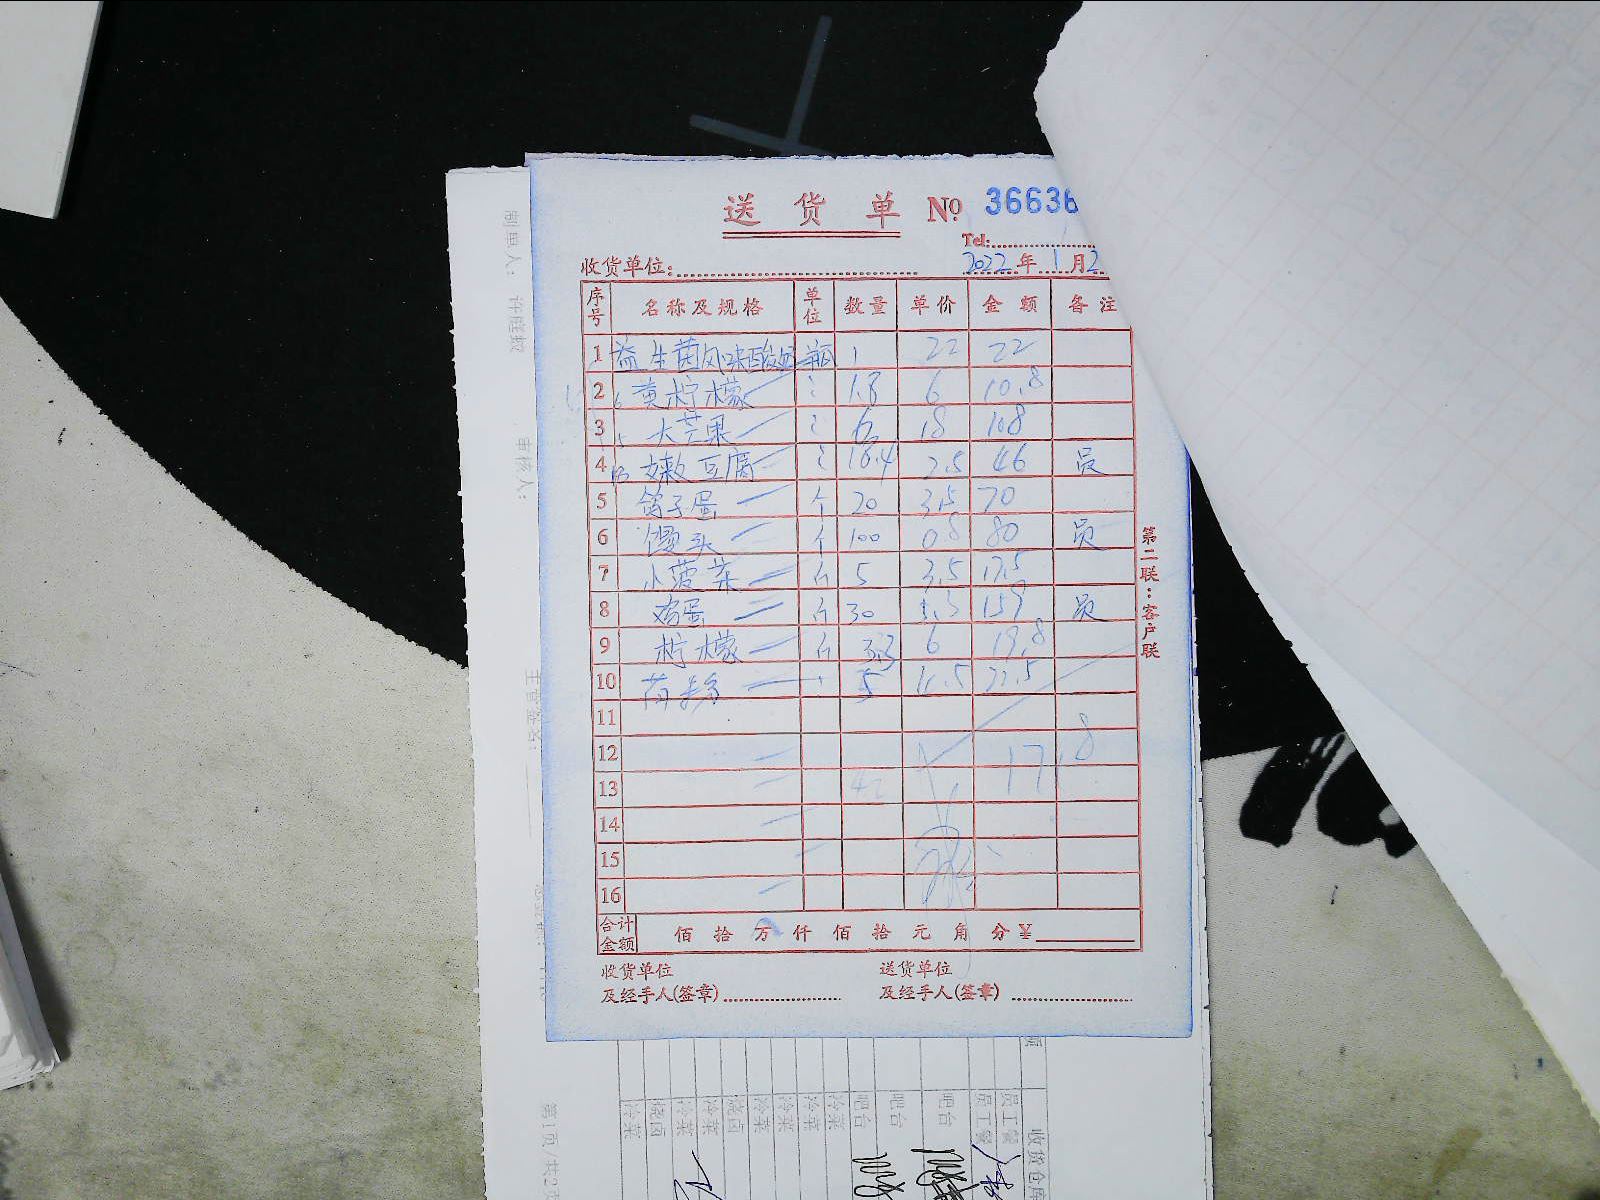 送货单 No 36636
Tel:
收货单位: 2022年1月2
序号 名称及规格 单位 数量 单价 金额 备注
1 益生菌风味酸奶 瓶 1 22 22
2 黄柠檬 1.8 6 10.8
3 大芒果 6 18 108
4 嫩豆腐 18.4 2.5 46 员
5 鸽子蛋 个 20 3.5 70
6 馒头 个 100 0.8 80 员
7 小菠菜 斤 5 3.5 17.5
8 鸡蛋 斤 30 5.3 159 员
9 柠檬 斤 3.3 6 19.8
10 5 4.5 22.5
11
12
13
14
15
16
合计金额 佰拾万仟佰拾元角分¥
收货单位 送货单位
及经手人(签章) 及经手人(签章)
第二联:客户联
制单人:
审核人:
第1页/共2页
冷菜 烧卤 冷菜 冷菜 烧卤 冷菜 冷菜 冷菜 冷菜 吧台 吧台 吧台 员工餐 员工餐